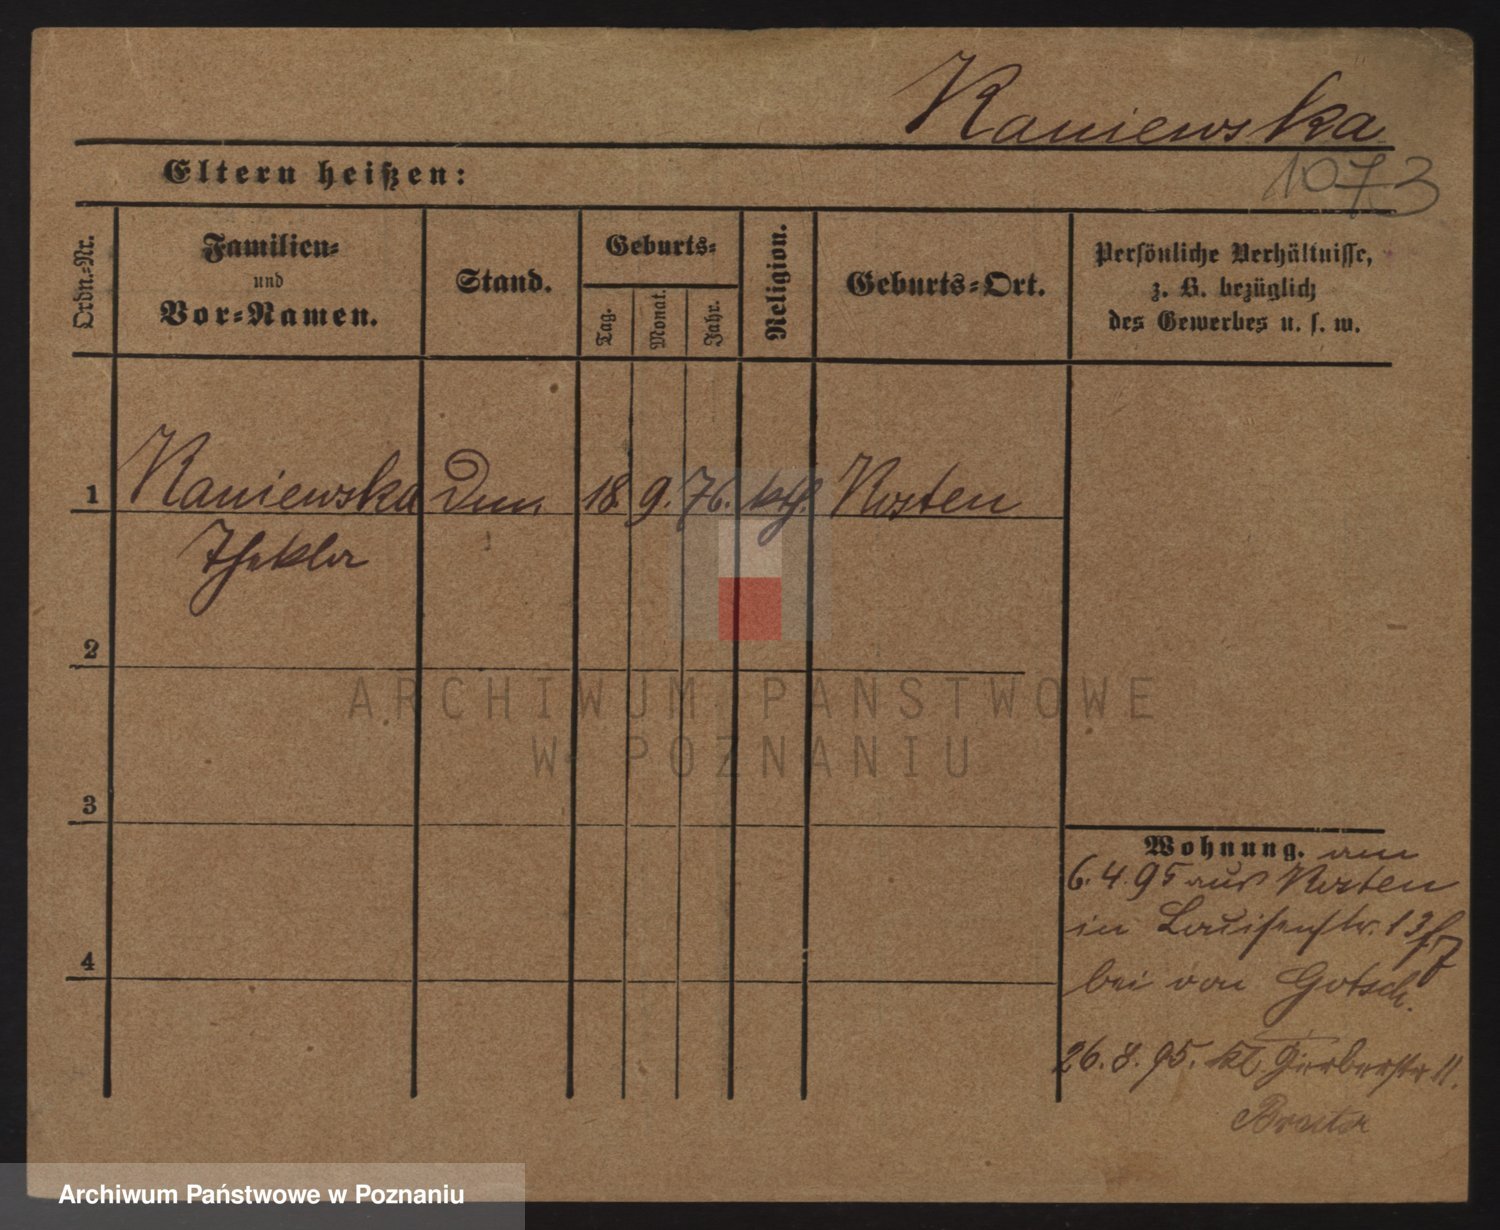 Kaniewska
1073
Eltern heißen:
Ordn.-Nr.
Familien-
und
Vor-Namen.
Stand.
Geburts-
Tag.
Monat.
Jahr.
Religion.
Geburts-Ort.
Persönliche Verhältnisse,
z. B. bezüglich
des Gewerbes u. s. w.
1 Kaniewska 18. 9. 76. kth. Kosten
Thekla
2
3
4
Wohnung. am
6.4.95 aus Kosten
in Louisenstr. 13
bei von Gotsch.
26.8.95. kl. Gerberstr 11.
ARCHIWUM PAŃSTWOWE
W POZNANIU
Archiwum Państwowe w Poznaniu